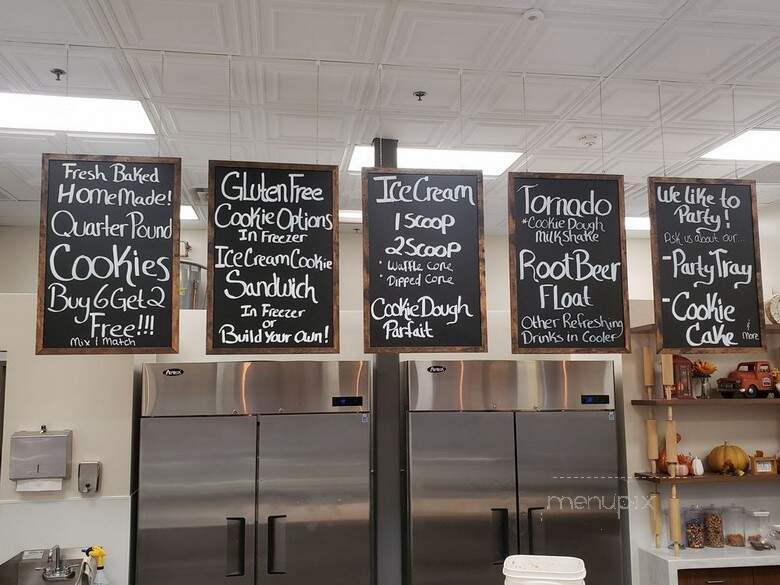 Fresh Baked
HomeMade!
Quarter Pound
Cookies
Buy 6 Get 2
Free!!!
Mix / Match
Gluten Free
Cookie Options
In Freezer
Ice Cream Cookie
Sandwich
In Freezer
or
Build Your Own!
Ice Cream
1 Scoop
2 Scoop
• Waffle Cone
• Dipped Cone
Cookie Dough
Parfait
Tornado
*Cookie Dough
Milkshake
Root Beer
Float
Other Refreshing
Drinks in Cooler
We like to
Party!
Ask us about our...
-Party Tray
-Cookie
Cake
& More
menupix